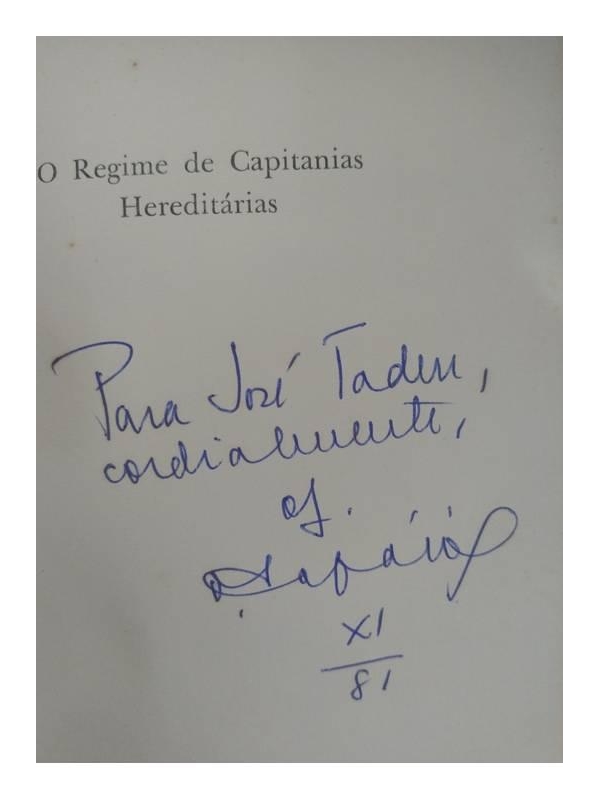 O Regime de Capitanias
Hereditárias
Para José Tadeu,
cordialmente,
of.
XI
81